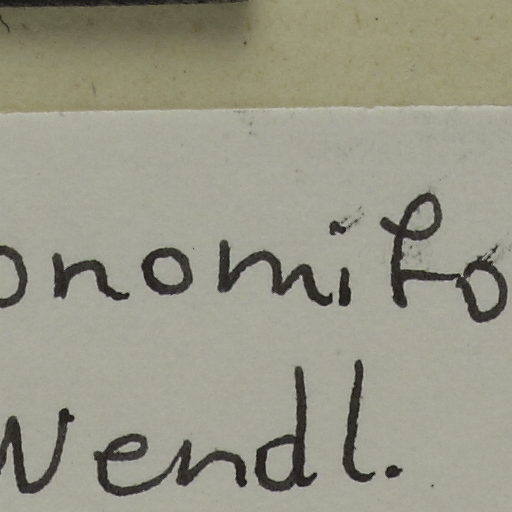 onomiko
Wendl.